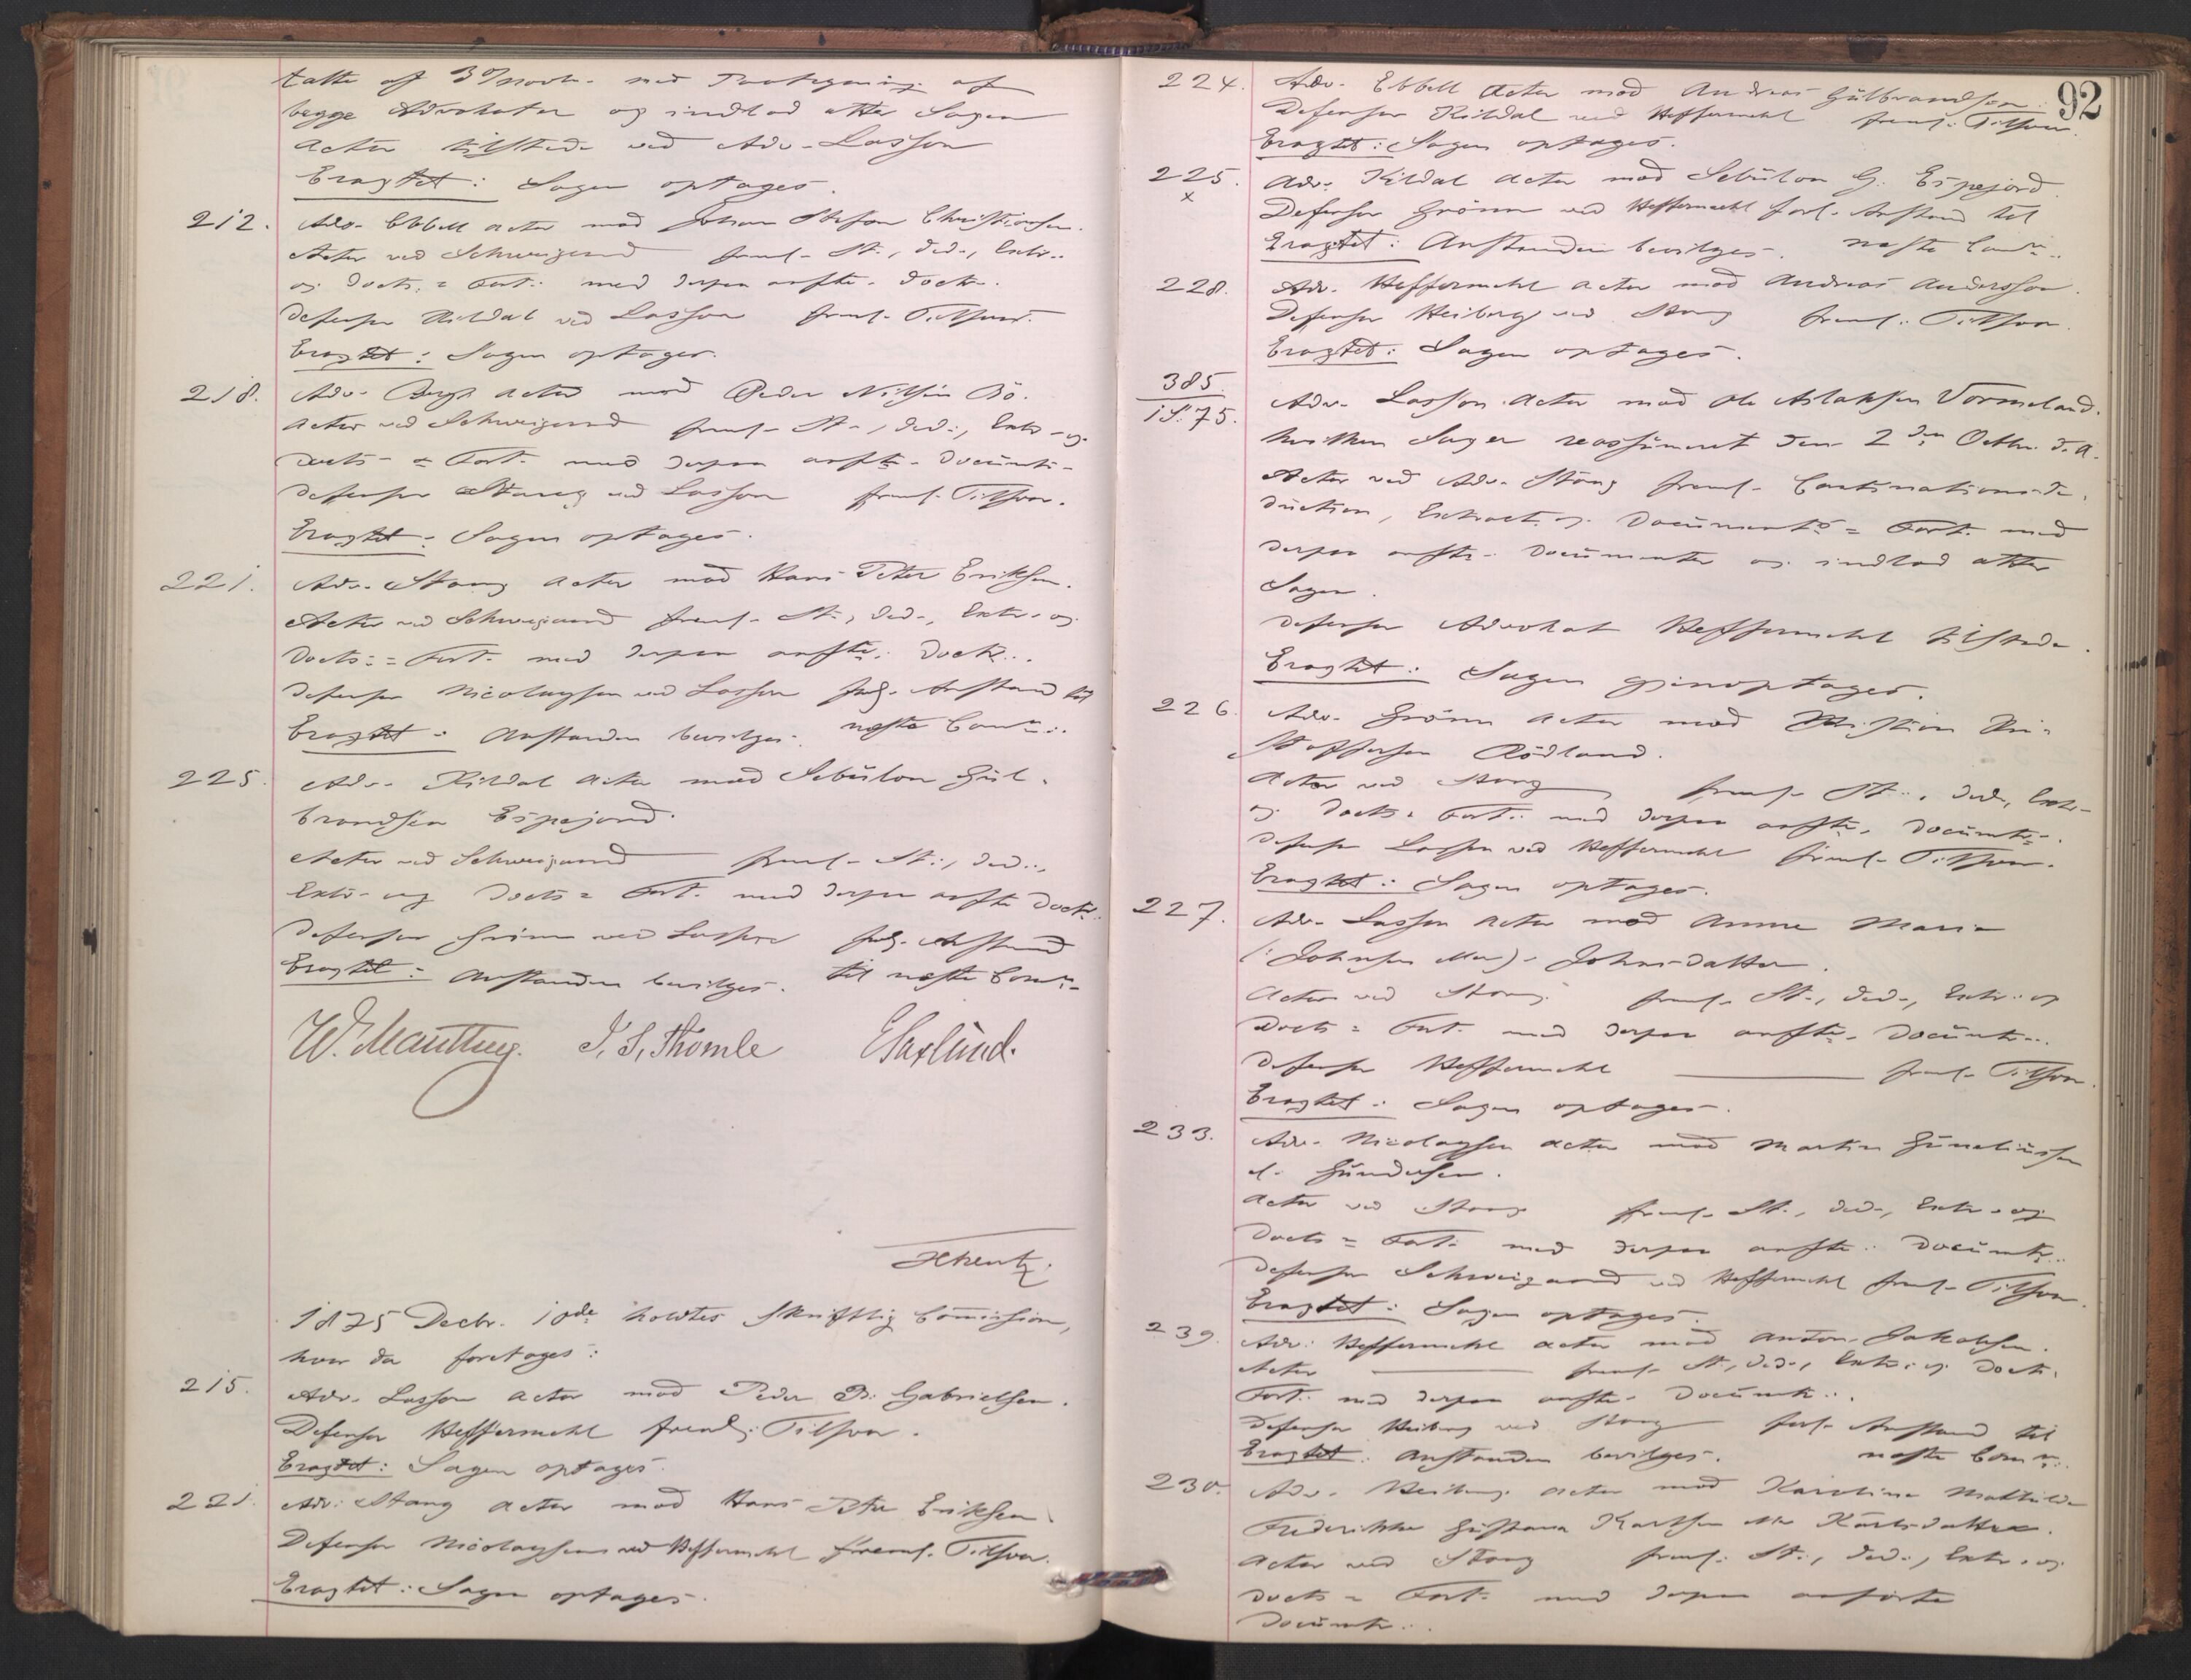 talte af 3 Novbr. med Paategning af
begge Advokater og indlod atter Sagen
Actor tilstede ved Adv. Lasson
Eragtet: Sagen optages.
212. Adv. Ebbell actor mod Johan Christiansen.
Actor ved Schweigaard freml. St., Ded., Extr.
og Docts. = Fort. med derpaa anfte. Docte.
Defensor Kildal ved Lasson freml. Tilsvar.
Eragtet: Sagen optages.
218. Adv. Bergh actor mod Peder Nilsen Bö.
Actor ved Schweigaard freml. St., Ded., Extr. og
Docts. = Fort. med derpaa anfte. Documte.
Defensor Stang ved Lasson freml. Tilsvar.
Eragtet: Sagen optages.
221. Adv. Stang actor mod Hans Peter Eriksen.
Actor ved Schweigaard freml. St., Ded., Extr. og
Docts. = Fort. med derpaa anfte. Docte.
Defensor Nicolaysen ved Lasson forl. Anstand til
Eragtet: Anstanden bevilges. næste Comn.
225. Adv. Kildal actor mod Sebülon Gül-
brandsen Espejord.
Actor ved Schweigaard freml. St., Ded.,
Extr. og Docts. = Fort. med derpaa anfte Docte.
Defensor Grönn ved Lasson forl. Anstand
Eragtet: Anstanden bevilges. til næste Comn.
W. Manthey. J. S. Thomle E Saxlünd.
1875 Decbr. 10de holdtes Skriftlig Commission,
hvor da foretages:
215. Adv. Lasson actor mod Peder B. Gabrielsen.
Defensor Heffermehl freml. Tilsvar.
Eragtet: Sagen optages.
221. Adv. Stang actor mod Hans Peter Eriksen
Defensor Nicolaysen ved Heffermehl freml. Tilsvar.
Eragtet: Sagen optages.
92
224. Adv. Ebbell actor mod Andreas Gülbrandsen.
Defensor Kildal ved Heffermehl freml. Tilsvar.
Eragtet: Sagen optages.
225. Adv. Kildal actor mod Sebülon G. Espejord
x Defensor Grönn ved Heffermehl forl. Anstand til
Eragtet: Anstanden bevilges. næste Comn.
228. Adv. Heffermehl actor mod Andreas Andersson.
Defensor Heiberg ved Stang freml. Tilsvar.
Eragtet: Sagen optages.
385 / 1S. 75. Adv. Lasson actor mod Ole Aslaksen Vormeland.
hvilken Sag er reassümeret den 2den Octbr. d. A.
Actor ved Adv. Stang freml. Continuations-De-
düction, Extract og Documents = Fort. med
derpaa anfte. Documenter og indlod atter
Sagen.
Defensor Advokat Heffermehl tilstede.
Eragtet: Sagen gjenoptages.
226. Adv. Grönn actor mod Kristian Kri-
stoffersen Rödland.
Actor ved Stang freml. St., Ded., Extr.
og Docts. = Fort. med derpaa anfte. Documte.
Defensor Lasson ved Heffermehl freml. Tilsvar.
Eragtet: Sagen optages.
227. Adv. Lasson actor mod Anne Marie
(: Johnsen eller) Johnsdatter.
Actor ved Stang freml. St., Ded., Extr. og
Docts. = Fort. med derpaa anfte. Documte.
Defensor Heffermehl freml. Tilsvar.
Eragtet: Sagen optages.
233. Adv. Nicolaysen actor mod Martin
el. Gündersen.
Actor ved Stang freml. St., Ded., Extr. og
Docts. = Fort. med derpaa anfte. Documte.
Defensor Schweigaard ved Heffermehl freml. Tilsvar.
Eragtet: Sagen optages.
239. Adv. Heffermehl actor mod Anton Jakobsen.
Actor freml. St., Ded., Extr. og Docts.
Fort. med derpaa anfte. Documte.
Defensor Heiberg ved Stang forl. Anstand til
Eragtet: Anstanden bevilges. næste Comn.
230. Adv. Heiberg actor mod Karoline Mathilde
Frederikke Güstava Karlsen eller Karlsdatter.
Actor ved Stang freml. St., Ded., Extr. og
Docts. = Fort. med derpaa anförte
Documte.